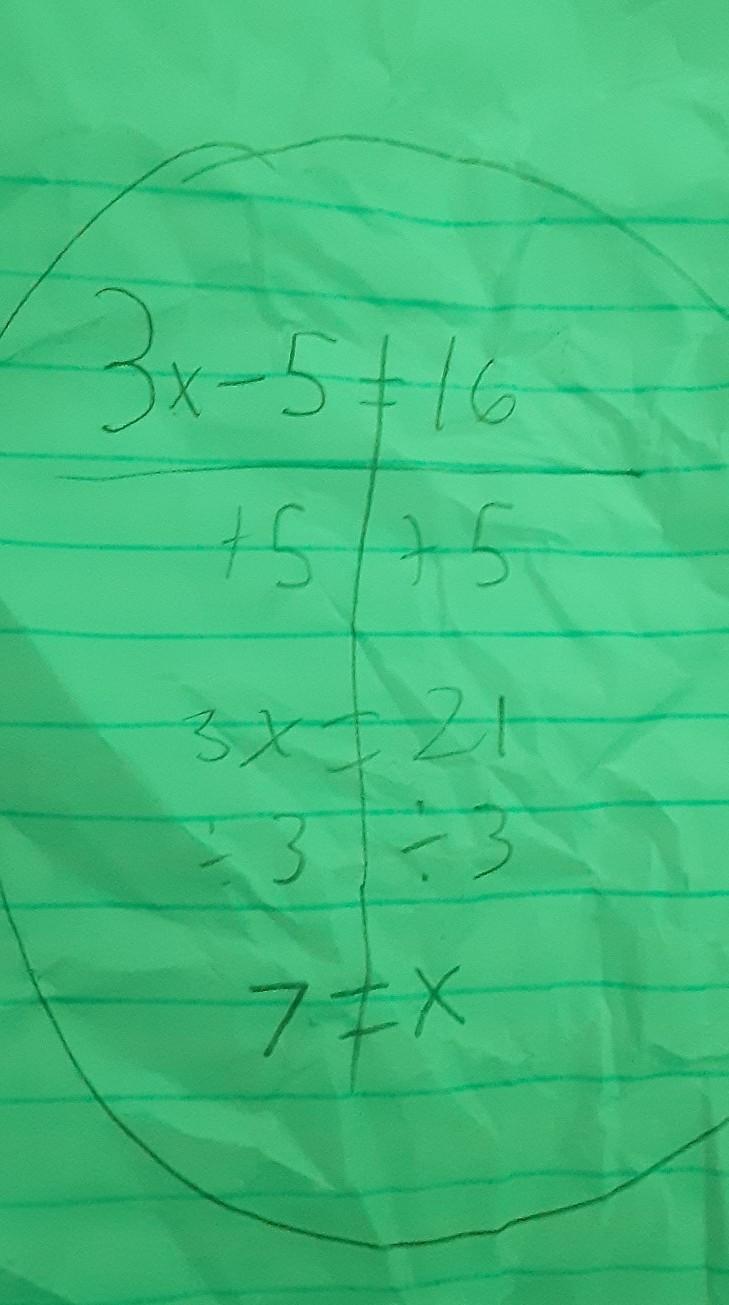 3x-5=16
+5 +5
3x=21
÷3 ÷3
7=x